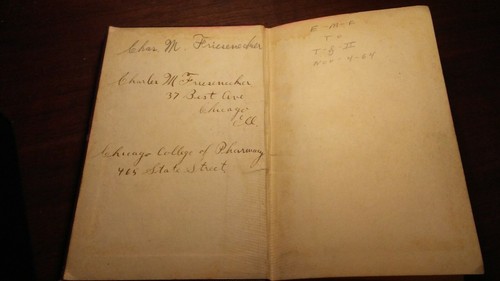 Chas. M. Friesenecker
Charles M Friesenecker
37 Best Ave
Chicago
Ill.
Chicago College of Pharmacy
465 State Street